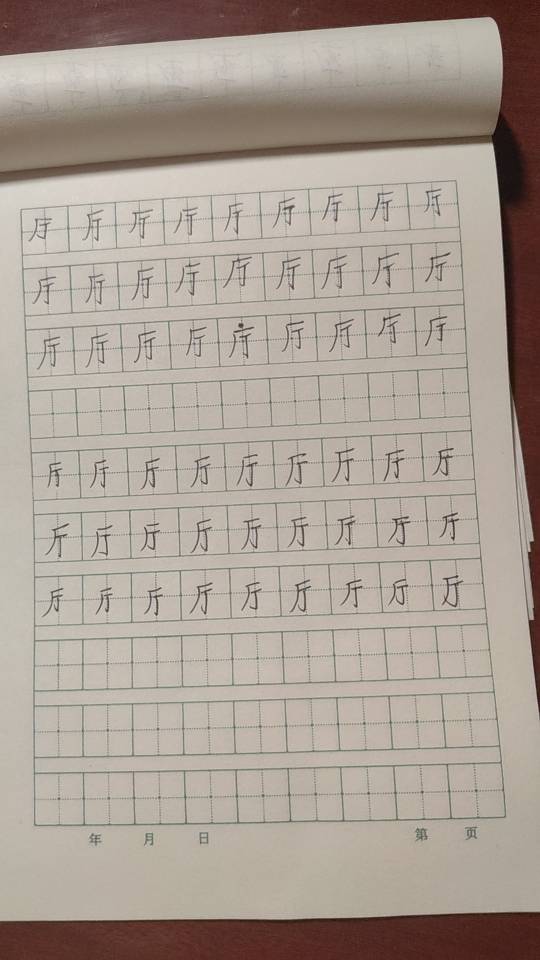 厅 厅 厅 厅 厅 厅 厅 厅 厅
厅 厅 厅 厅 厅 厅 厅 厅 厅
厅 厅 厅 厅 厅 厅 厅 厅 厅
厅 厅 厅 厅 厅 厅 厅 厅 厅
厅 厅 厅 厅 厅 厅 厅 厅 厅
厅 厅 厅 厅 厅 厅 厅 厅 厅
年 月 日 第 页